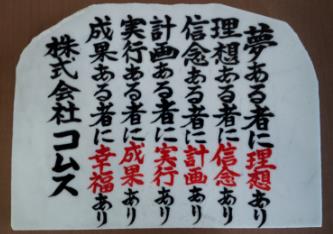 夢ある者に理想あり
理想ある者に信念あり
信念ある者に計画あり
計画ある者に実行あり
実行ある者に成果あり
成果ある者に幸福あり
株式会社コムス